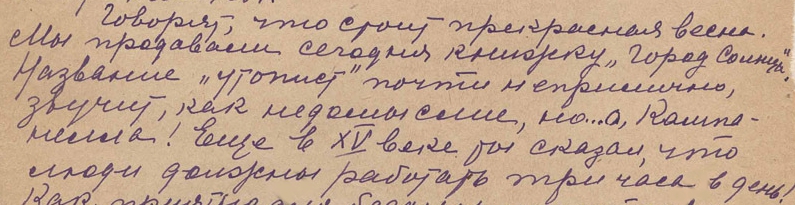 Говорят, что стоит прекрасная весна.
Мы продавали сегодня книжку „Город Солнца“.
Название „утопист“ почти неприлично,
звучит, как недомыслие, но...о, Кампа-
нелла! Еще в XV веке ты сказал, что
люди должны работать три часа в день!
Как приятно